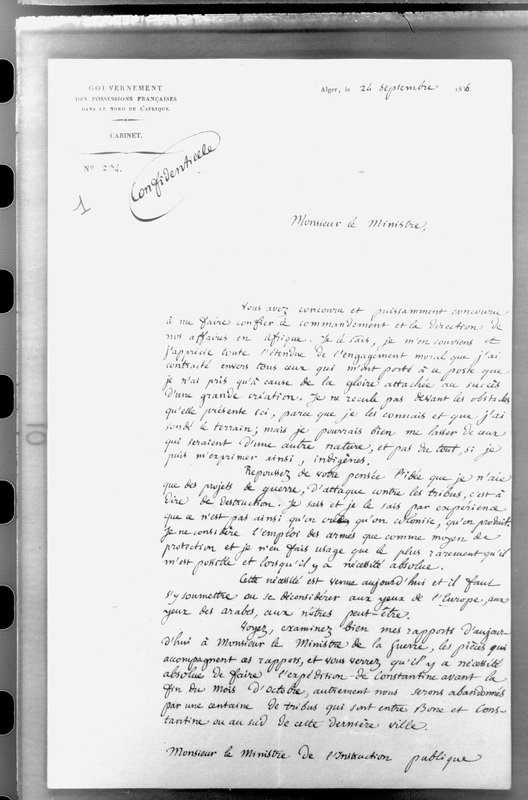 GOUVERNEMENT
DES POSSESSIONS FRANÇAISES
DANS LE NORD DE L'AFRIQUE.
CABINET.
Alger, le 24 septembre 1836.
N° 224.
Confidentielle
1
Monsieur le Ministre,
Vous avez concouru et puissamment concouru
à me faire confier le commandement et la direction de
nos affaires en Afrique. Je le sais, je m'en souviens et
j'apprécie toute l'étendue de l'engagement moral que j'ai
contracté envers tous ceux qui m'ont porté à ce poste que
je n'ai pris qu'à cause de la gloire attachée au succès
d'une grande création. Je ne recule pas devant les obstacles
qu'elle présente ici, parce que je les connais et que j'ai
sondé le terrain; mais je pourrais bien me lasser de ceux
qui seraient d'une autre nature, et pas du tout, si je
puis m'exprimer ainsi, indigènes.
Repoussez de votre pensée l'idée que je n'aie
que des projets de guerre, d'attaque contre les tribus, c'est à
dire de destruction. Je sais et je le sais par expérience
que ce n'est pas ainsi qu'on crée, qu'on colonise, qu'on produit.
Je ne considère l'emploi des armes que comme moyen de
protection et je n'en fais usage que le plus rarement qu'il
m'est possible et lorsqu'il y a nécessité absolue.
Cette nécessité est venue aujourd'hui et il faut
s'y soumettre ou se déconsidérer aux yeux de l'Europe, aux
yeux des arabes, aux nôtres peut être.
Voyez, examinez bien mes rapports d'aujour-
d'hui à Monsieur le Ministre de la guerre, les pièces qui
acompagnent ces rapports, et vous verrez qu'il y a nécessité
absolue de faire l'expédition de Constantine avant la
fin du mois d'octobre, autrement nous serons abandonnés
par une centaine de tribus qui sont entre Bone et Cons-
tantine ou au sud de cette dernière ville.
Monsieur le Ministre de l'instruction publique
10